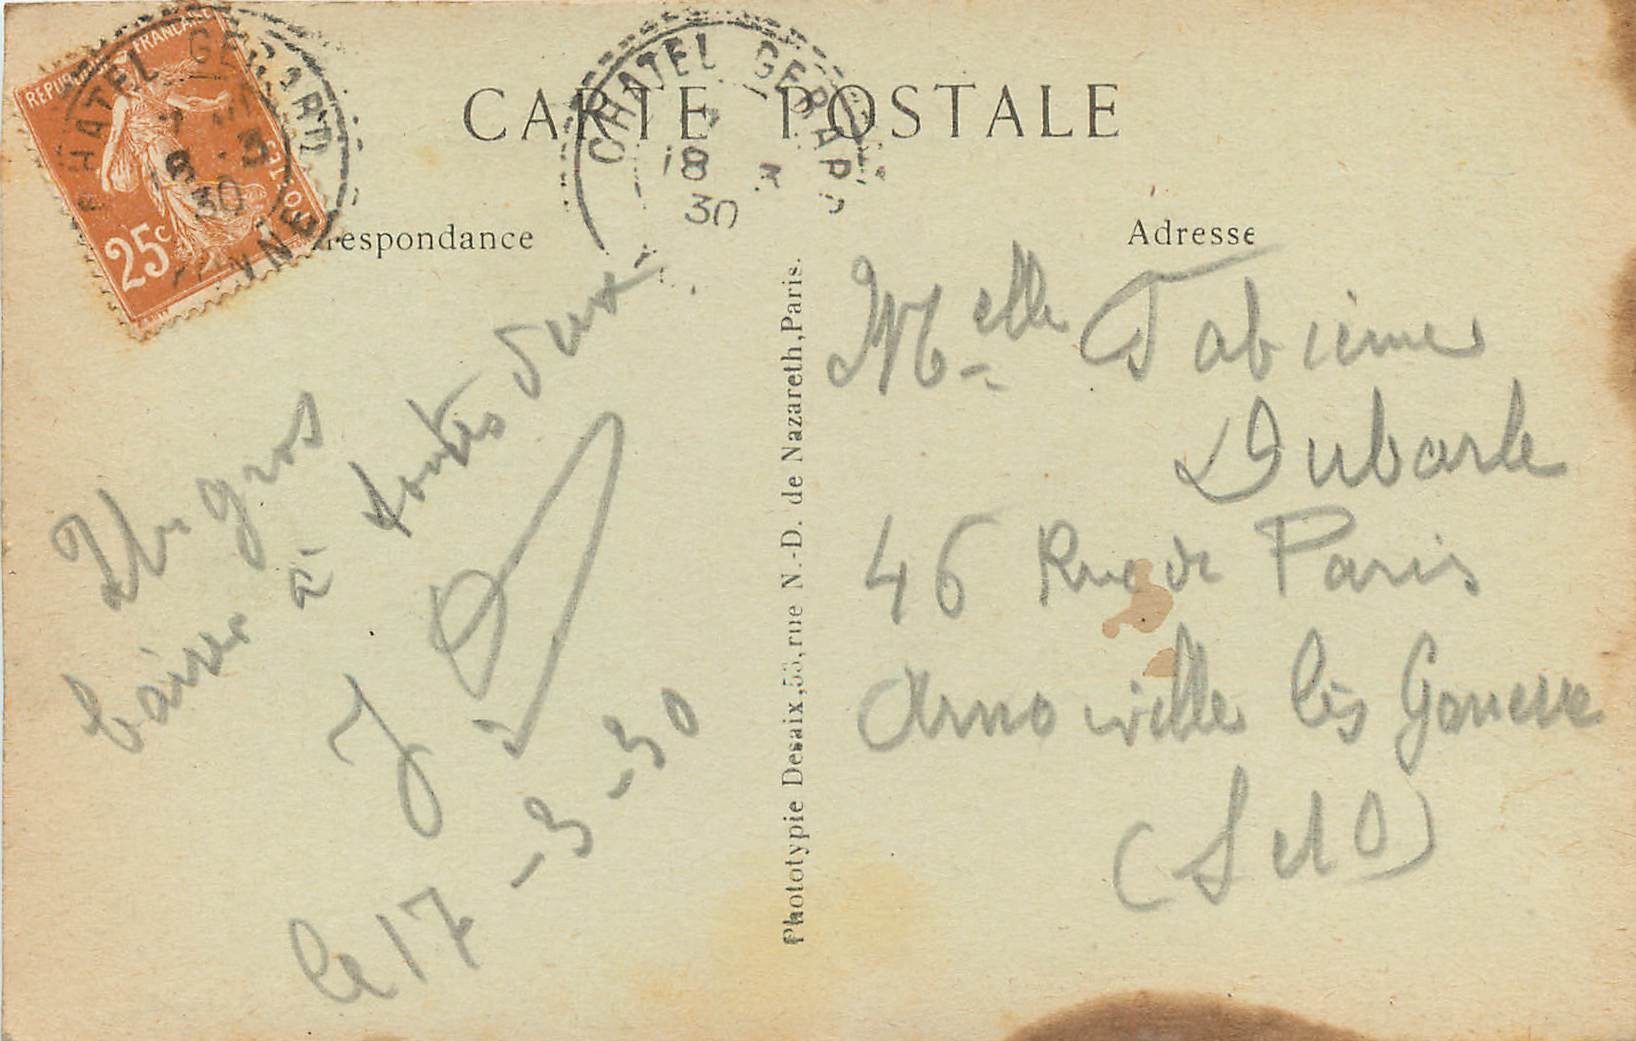 CARTE POSTALE
respondance
Adresse
REPUBLIQUE FRANCAISE
POSTES
25c
CHATEL GERARD
18
30
YONNE
CHATEL GERARD
18 3
30
Un gros
baiser à toutes deux
J
le 17-3-30
Phototypie Desaix, 55, rue N.-D. de Nazareth, Paris.
Melle Fabienne
Dubarle
46 Rue de Paris
Arnouville lès Gonesse
(S et O)